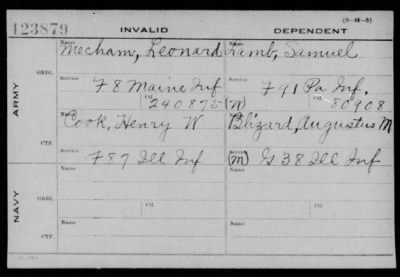 (3-H-5)
123879 INVALID DEPENDENT
Name Name
Mecham, Leonard Lamb, Samuel
ARMY ORIG. Service Service
F 8 Maine Inf F 91 Pa Inf.
Ctf. 240875 (W) Ctf. 80908
Name Name
Cook, Henry W Blizard, Augustus M
CTF. Service Service
F 87 Ill Inf (M) G 38 Ill Inf
NAVY ORIG. Name Name
Ctf. Ctf.
CTF. Name Name